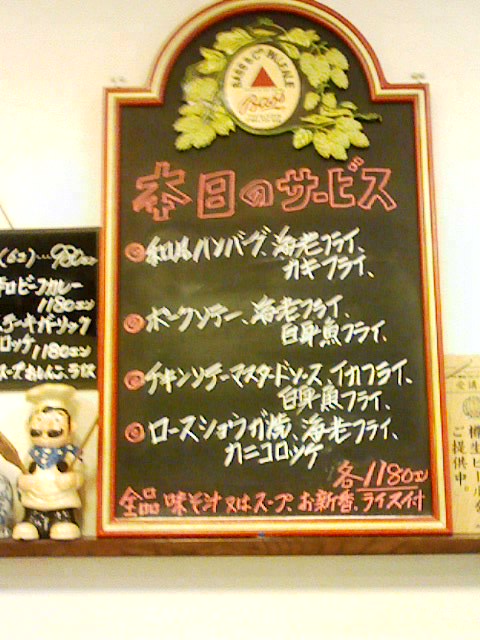 BASS & Co's PALE ALE
Bass
本日のサービス
和風ハンバーグ、海老フライ、
カキフライ、
ポークソテー、海老フライ、
白身魚フライ、
チキンソテーマスタードソース、イカフライ、
白身魚フライ、
ロースショウガ焼、海老フライ、
カニコロッケ
各1180エン
全品 味そ汁 又はスープ、お新香、ライス付
(6コ)…980エン
ビーフカレー
1180エン
ステーキガーリック
ロッケ 1180エン
スープ、おしんこ、ライス
樽生ビール
ご提供中。